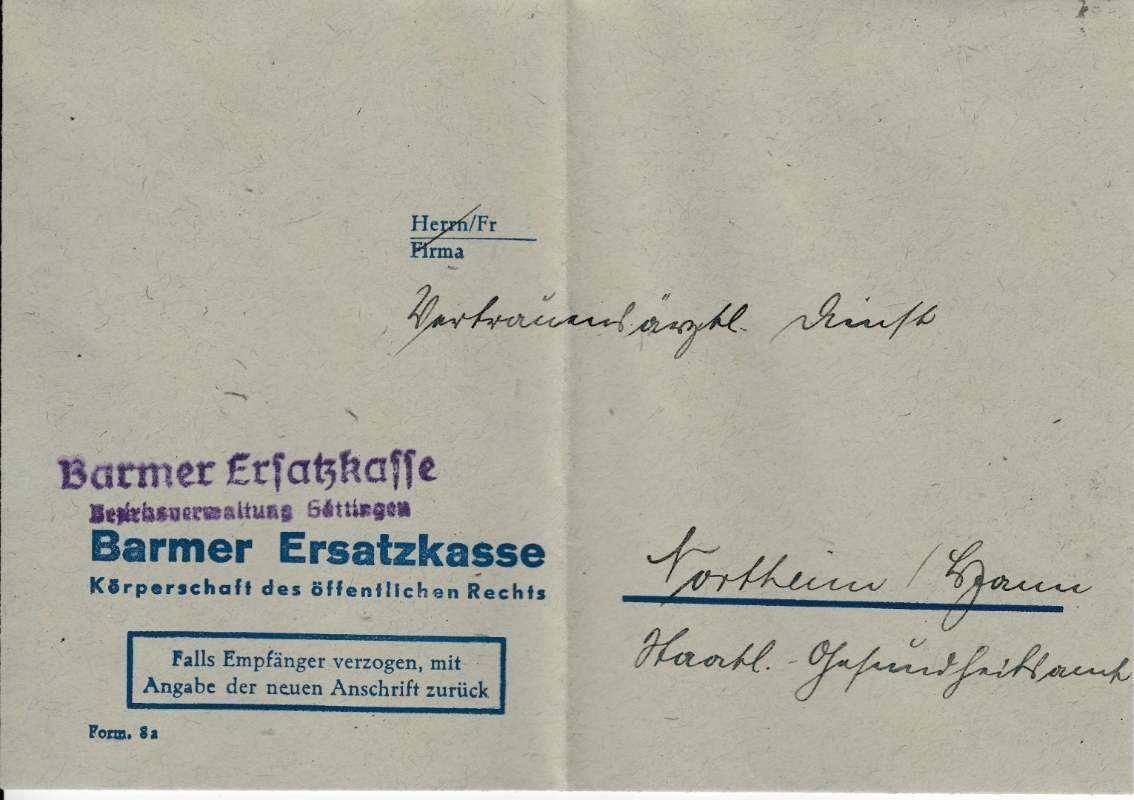 Herrn/Fr
Firma
Vertrauensärztl. Dienst
Barmer Ersatzkasse
Bezirksverwaltung Göttingen
Barmer Ersatzkasse
Körperschaft des öffentlichen Rechts
Northeim / Hann
Staatl. Gesundheitsamt
Falls Empfänger verzogen, mit
Angabe der neuen Anschrift zurück
Form. 8a